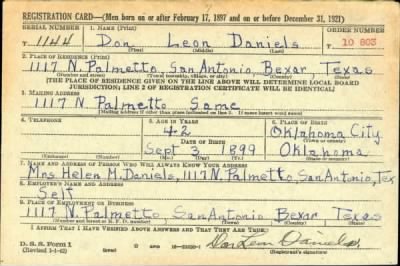 REGISTRATION CARD—(Men born on or after February 17, 1897 and on or before December 31, 1921)
SERIAL NUMBER 1. NAME (Print) ORDER NUMBER
T 1144 Don Leon Daniels T 10 803
(First) (Middle) (Last)
2. PLACE OF RESIDENCE (Print)
1117 N. Palmetto, San Antonio, Bexar Texas
(Number and street) (Town, township, village, or city) (County) (State)
[THE PLACE OF RESIDENCE GIVEN ON THE LINE ABOVE WILL DETERMINE LOCAL BOARD
JURISDICTION; LINE 2 OF REGISTRATION CERTIFICATE WILL BE IDENTICAL]
3. MAILING ADDRESS
1117 N. Palmetto Same
[Mailing address if other than place indicated on line 2. If same insert word same]
4. TELEPHONE 5. AGE IN YEARS 6. PLACE OF BIRTH
42 Oklahoma City
DATE OF BIRTH (Town or county)
Sept 3, 1899 Oklahoma
(Exchange) (Number) (Mo.) (Day) (Yr.) (State or country)
7. NAME AND ADDRESS OF PERSON WHO WILL ALWAYS KNOW YOUR ADDRESS
Mrs Helen M. Daniels, 1117 N. Palmetto, San Antonio, Tex
8. EMPLOYER'S NAME AND ADDRESS
Self
9. PLACE OF EMPLOYMENT OR BUSINESS
1117 N. Palmetto, San Antonio Bexar Texas
(Number and street or R. F. D. number) (Town) (County) (State)
I AFFIRM THAT I HAVE VERIFIED ABOVE ANSWERS AND THAT THEY ARE TRUE.
D. S. S. Form 1 Don Leon Daniels
(Revised 1-1-42) (over) (Registrant's signature)